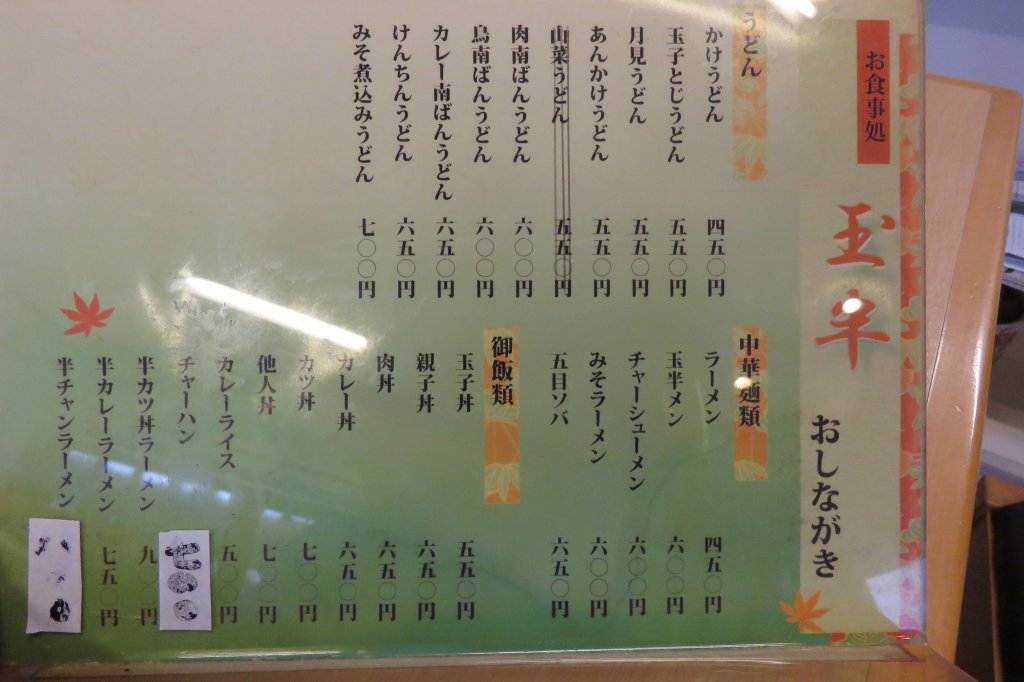 お食事処
玉半
おしながき
うどん
かけうどん 四五〇円
玉子とじうどん 五五〇円
月見うどん 五五〇円
あんかけうどん 五五〇円
山菜うどん 五五〇円
肉南ばんうどん 六〇〇円
鳥南ばんうどん 六〇〇円
カレー南ばんうどん 六五〇円
けんちんうどん 六五〇円
みそ煮込みうどん 七〇〇円
中華麺類
ラーメン 四五〇円
玉半メン 六〇〇円
チャーシューメン 六〇〇円
みそラーメン 六〇〇円
五目ソバ 六五〇円
御飯類
玉子丼 五五〇円
親子丼 六五〇円
肉丼 六五〇円
カレー丼 六五〇円
カツ丼 七〇〇円
他人丼 七〇〇円
カレーライス 五〇〇円
チャーハン 七〇〇
半カツ丼ラーメン 九〇〇円
半カレーラーメン 七五〇円
半チャンラーメン